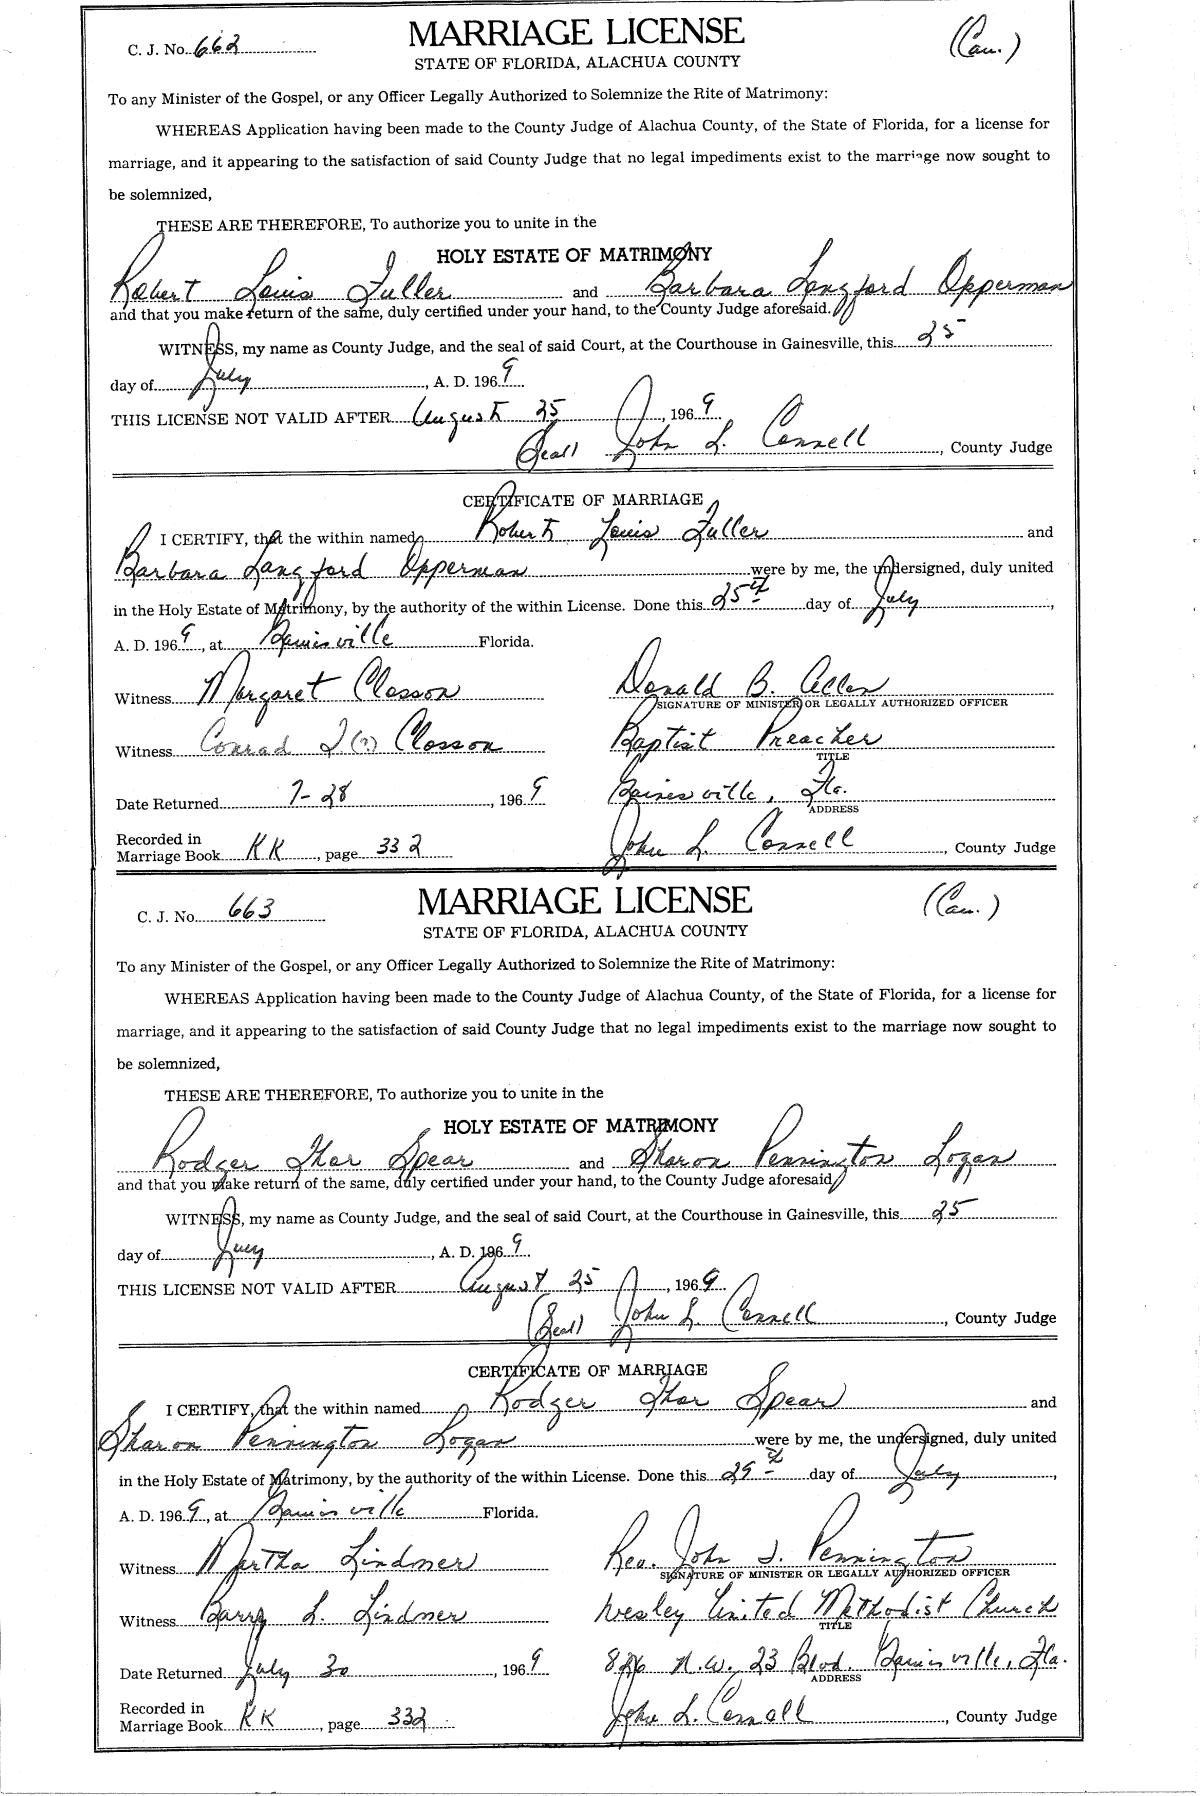 C. J. No. 662 MARRIAGE LICENSE (Cau.)
STATE OF FLORIDA, ALACHUA COUNTY
To any Minister of the Gospel, or any Officer Legally Authorized to Solemnize the Rite of Matrimony:
WHEREAS Application having been made to the County Judge of Alachua County, of the State of Florida, for a license for
marriage, and it appearing to the satisfaction of said County Judge that no legal impediments exist to the marriage now sought to
be solemnized,
THESE ARE THEREFORE, To authorize you to unite in the
HOLY ESTATE OF MATRIMONY
Robert Louis Fuller and Barbara Langford Opperman
and that you make return of the same, duly certified under your hand, to the County Judge aforesaid.
WITNESS, my name as County Judge, and the seal of said Court, at the Courthouse in Gainesville, this 25
day of July, A. D. 1969
THIS LICENSE NOT VALID AFTER August 25, 1969
(Seal) John L. Connell, County Judge
CERTIFICATE OF MARRIAGE
I CERTIFY, that the within named Robert Louis Fuller and
Barbara Langford Opperman were by me, the undersigned, duly united
in the Holy Estate of Matrimony, by the authority of the within License. Done this 25th day of July,
A. D. 1969, at Gainesville Florida.
Witness Margaret Closson Donald B. Allen
SIGNATURE OF MINISTER OR LEGALLY AUTHORIZED OFFICER
Witness Conrad I (?) Closson Baptist Preacher
TITLE
Date Returned 7-28, 1969 Gainesville, Fla.
ADDRESS
Recorded in
Marriage Book KK, page 332 John L. Connell, County Judge
C. J. No. 663 MARRIAGE LICENSE (Cau.)
STATE OF FLORIDA, ALACHUA COUNTY
To any Minister of the Gospel, or any Officer Legally Authorized to Solemnize the Rite of Matrimony:
WHEREAS Application having been made to the County Judge of Alachua County, of the State of Florida, for a license for
marriage, and it appearing to the satisfaction of said County Judge that no legal impediments exist to the marriage now sought to
be solemnized,
THESE ARE THEREFORE, To authorize you to unite in the
HOLY ESTATE OF MATRIMONY
Rodger Thor Spear and Sharon Pennington Logan
and that you make return of the same, duly certified under your hand, to the County Judge aforesaid
WITNESS, my name as County Judge, and the seal of said Court, at the Courthouse in Gainesville, this 25
day of July, A. D. 1969.
THIS LICENSE NOT VALID AFTER August 25, 1969
(Seal) John L. Connell, County Judge
CERTIFICATE OF MARRIAGE
I CERTIFY, that the within named Rodger Thor Spear and
Sharon Pennington Logan were by me, the undersigned, duly united
in the Holy Estate of Matrimony, by the authority of the within License. Done this 29th day of July,
A. D. 1969, at Gainesville Florida.
Witness Martha Lindner Rev. John I. Pennington
SIGNATURE OF MINISTER OR LEGALLY AUTHORIZED OFFICER
Witness Barry L. Lindner Wesley United Methodist Church
TITLE
Date Returned July 30, 1969 826 N.W. 23 Blvd. Gainesville, Fla.
ADDRESS
Recorded in
Marriage Book KK, page 332 John L. Connell, County Judge